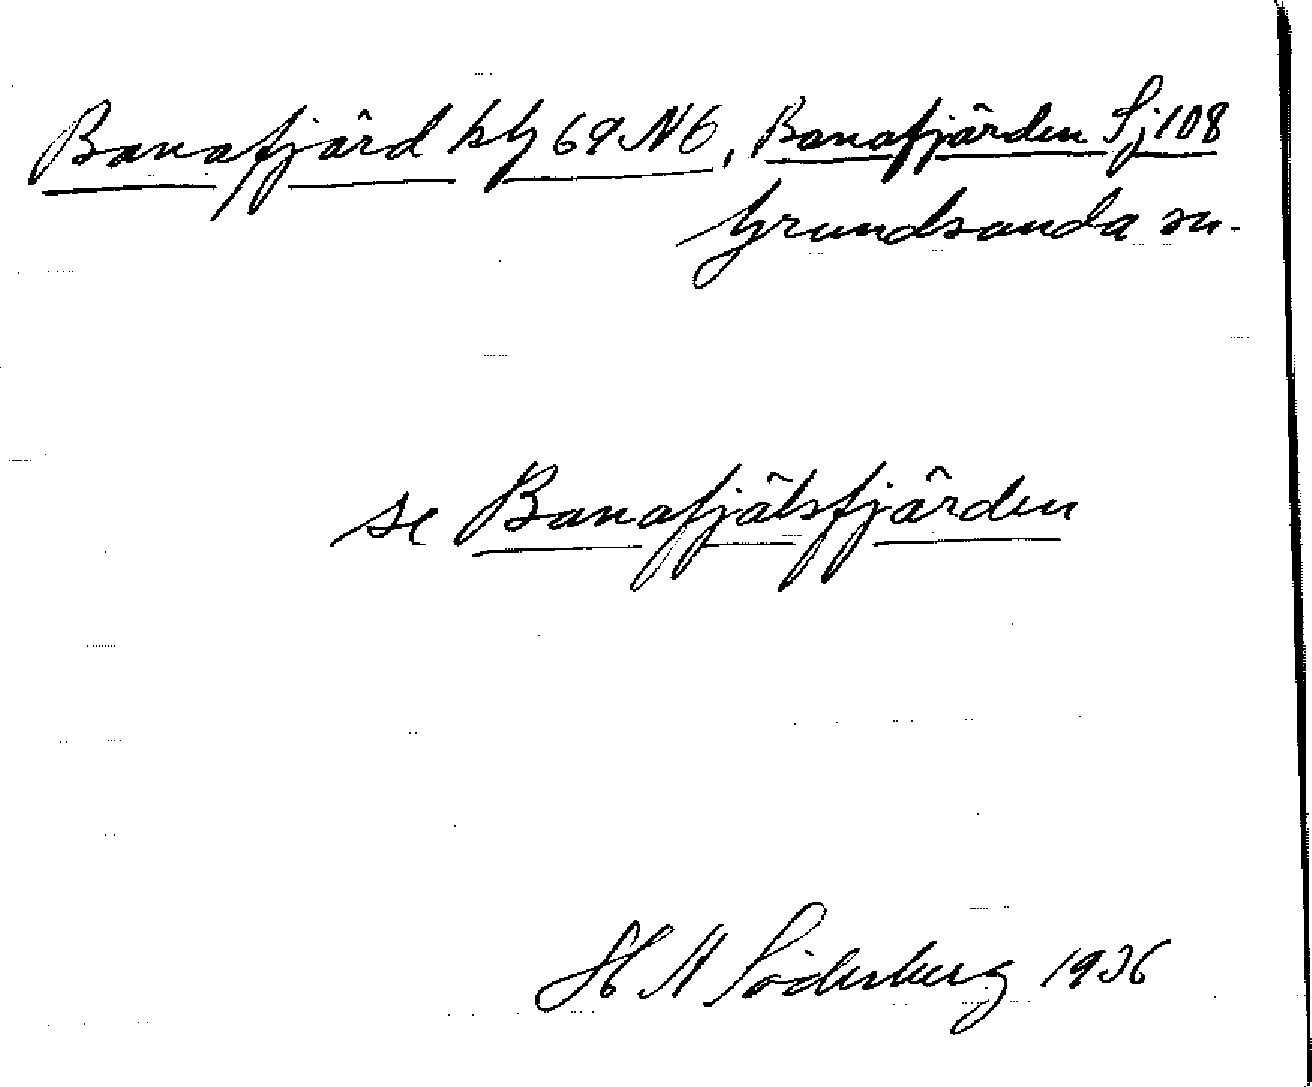 Banafjärd kbl 69 NO, Banafjärden Sj 108
Grundsunda sn.
se Banafjälsfjärden
Söderberg 1936